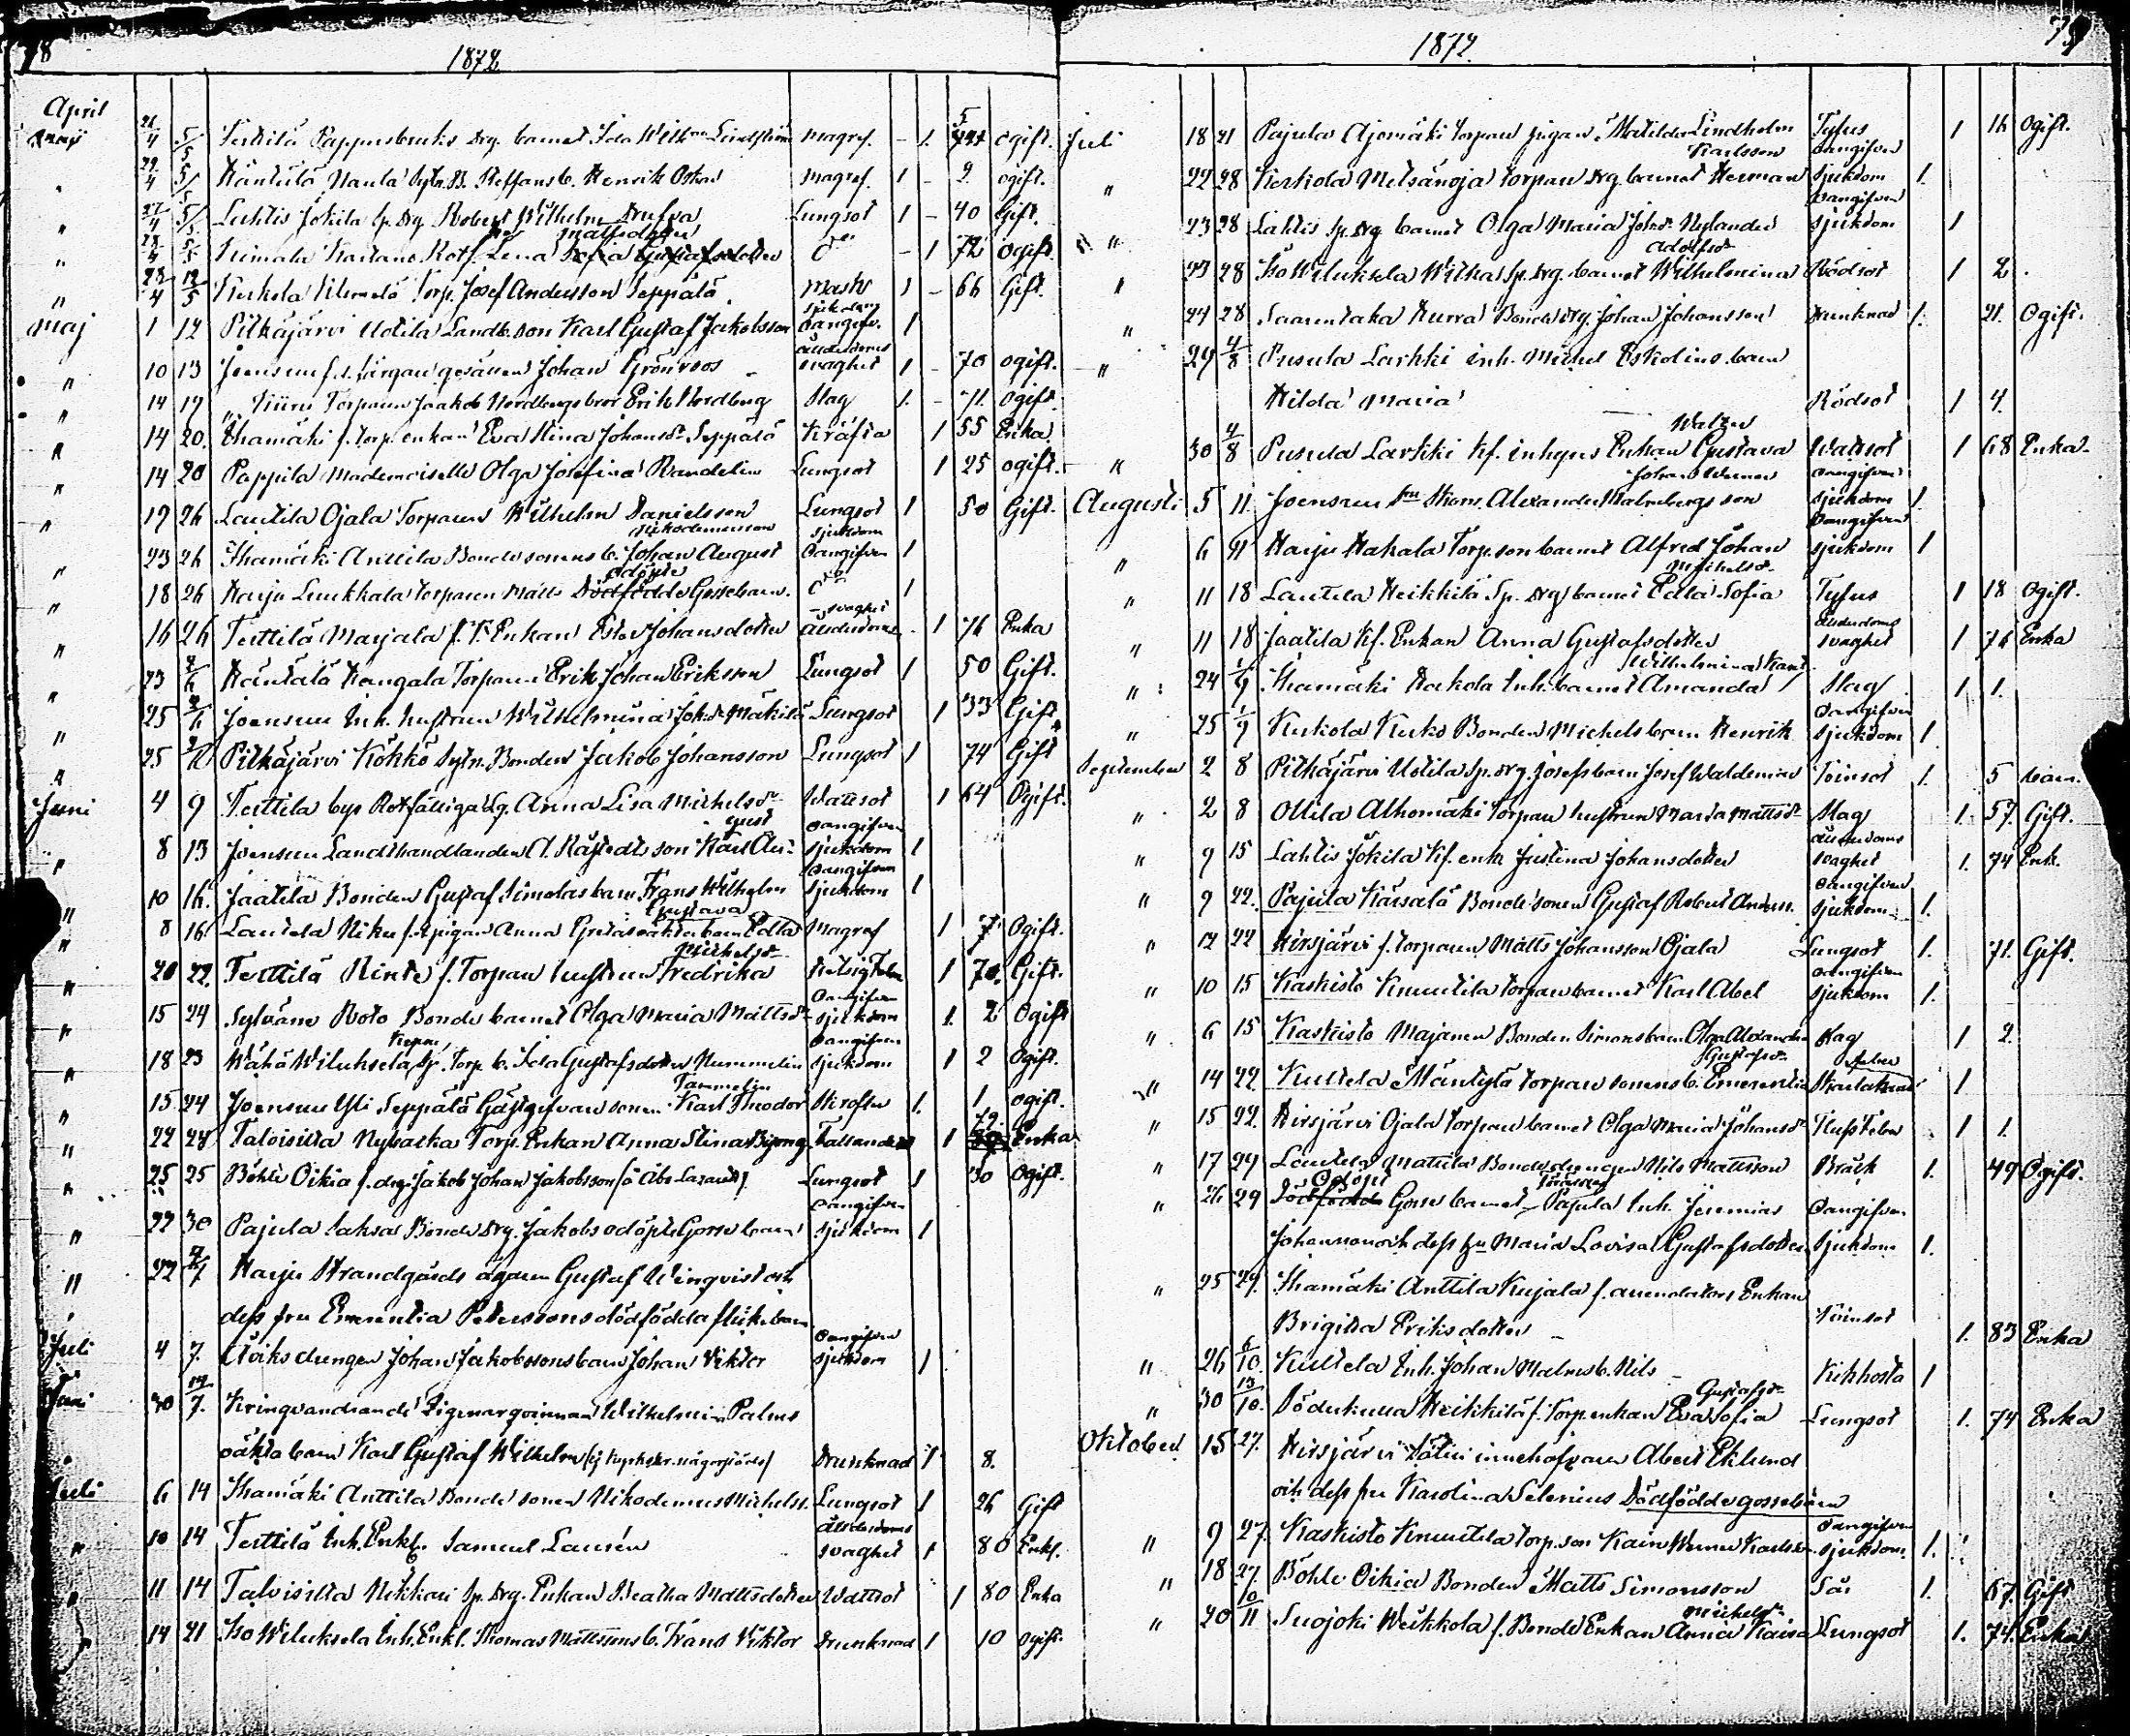 78
1872
April
Maji 21/4 5/5 Terttilä Pappersbruks drg. barnet Ida Wilh. Lindström Magref. - 1. 5 ogift.
" 22/4 5/5 Häntälä Nanla Sytn. B. Steffans b. Henrik Oskar Magref. 1 - 2. ogift.
" 27/4 5/5 Luhtis Jokila sp. drg Robert Wilhelm Drufva Lungsot 1 - 40 Gift.
Mattsdotter
" 5/5 Kaitano Rotf. Lena do - 1 72 ogift
" 12/5 Kerkola Torp. Josef Andersson Seppälä 1 - 66 Gift.
Maj 1 12 Pitkäjärvi Uotila Landb. son Karl Gustaf Jakobsson Oangifv. sjukdom 1
" 10 13 Joensuu f.d. gesällen Johan Grönroos ålderdoms svaghet 1 - 70 ogift.
" 14 17 Torparen Jaakob Nordbergs bror Erik Nordberg Slag 1. - 71. Ogift
" 14 20. Ihamäki f. torp. enkan Eva Stina Johansdr Seppälä Kräfta 1 55 Enka
" 14 20 Pappila Mademoiselle Olga Josefina Randelin Lungsot 1 25 ogift.
" 19 26 Lautela Ojala Torparen Wilhelm Danielsson Lungsot 1 50 Gift.
Nikodemusson
" 23 26 Ihamäki Anttila Bondesonens b. Johan August sjukdom Oangifven 1
odöpte
" 18 26 Harju Luukkala torparen Matts Gossebarn. do 1
" 16 26 Terttilä Marjala f. T. Enkan Ester Johansdotter ålderdoms svaghet - 1 76 Enka
" 23 2/6 Häntälä Kangala Torparen Erik Johan Eriksson Lungsot 1 50 Gift.
" 25 2/6 Joensuu Inh. hustrun Wilhelmina Joh.dr Mäkilä Lungsot 1 33 Gift
" 25 Pitkäjärvi Köhkö Sytn. Bonden Jakob Johansson Lungsot 1 74 Gift
Juni 4 9 Terttilä bys Rotfattiga Anna Lisa Michelsdr Wattsot 1 64 Ogift.
" 8 13 Joensuu Landthandlanden A. Hästedts son Karl August Oangifven sjukdom 1
" 10 16. Jaatila Bonden Gustaf Simolas barn Frans Wilhelm Oangifven sjukdom 1
Gustava
" 8 16. Lautela Niku f. d. pigan Anna Gretas oäkta barn Edla Magref 1 7. Ogift.
Michelsdr
" 20 22. Terttilä Rinte f. Torpar hustrun Fredrika Hetsig Feber 1 70. Gift.
" 15 24 Sylvänä Roto Bonde barnet Olga Maria Mattsdr Oangifven sjukdom 1. 2 Ogift
" 18 23 Wähä Wiluksela Sp. Torp. b. Ida Gustafsdotter Nummelin Oangifven sjukdom 1 2 Ogift.
Tammelin
" 15 24 Joensuu Yli Seppälä Gästgifvaresonen Karl Theodor Skrofler 1. 1 ogift.
" 22 24 Taloisilta Torp. Enkan Anna Stina Fallandesot 1 79. Enka
" 25 25 Böhle Oikia f. drg. Jakob Johan Jakobsson (å Åbo Lazarett) Lungsot 1 30 Ogift.
" 27 30 Pajula Saksa Bonde drg. Jakobs odöpte Gosse barn Oangifven sjukdom 1
" 22 Harju Strandgårds ägaren Gustaf Winqvist och
dess fru Emerentia Peterssons dödfödda flickebarn
Juli 4 7. drengen Johan Jakobssons barn Johan Viktor Oangifven sjukdom 1
Juni 30 14/7. Kringvandrande Zigenarqvinnan Wilhelmin Palms
oäkta barn Karl Gustaf Wilhelm Drunknad 1 8.
Juli 6 14 Ihamäki Anttila Bonde sonen Nikodemus Michelss. Lungsot 1 26 Gift
" 10 14 Terttilä Inh. Enkl. Samuel Laurén ålderdoms svaghet 1 80 Enkl.
" 11 14 Talvisilta Nikkari Sp. drg. Enkan Beatha Mattsdotter Wattsot 1 80 Enka
" 14 21 Iso Wiluksela Inh. Enkl. Thomas Mattssons b. Frans Viktor Drunknad 1 10 ogift.
79
1872.
Juli 18 21 Pajula Ajomäki torpare pigan Matilda Lindholm Tyfus 1 16 Ogift.
Karlsson
" 22 28 Kerkola Metsänoja torpare drg. barnet Herman Oangifven sjukdom 1.
" 23 28 Lahtis Sp. drg barnet Olga Maria Joh.dr Nylander Oangifven sjukdom 1
Adolfsdr
" 23 28 Iso Wiluksela Wilka Sp. drg. barnet Wilhelmina Rödsot 1 2.
" 24 28 Saarentaka Kurra Bonde drg. Johan Johansson Drunknad 1. 21. Ogift.
" 29 4/8 Pusula Larkki inh. Michel Eskolins barn
Hilda Maria Rödsot 1 4.
" 30 4/8 Pusula Larkki kf. inhyses Enkan Gustava Wattsot 1 68 Enka
Johan Werner
Augusti 5 11. Joensuu Alexander Malmbergs son Oangifven sjukdom 1.
" 6 11 Harju Hakala Torp. son barnet Alfred Johan Oangifven sjukdom 1
Michelsdr
" 11 18 Lautela Heikkilä Sp. drg barnet Edla Sofia Tyfus 1 18 Ogift.
" 11 18 Jaatila Kf. Enkan Anna Gustafsdotter ålderdoms svaghet 1 76 Enka
Wilhelmina
" 24 1/9 Ihamäki Hakola Inh. barnet Amanda Slag 1 1.
" 25 1/9 Kerkola Kerko Bonden Michels barn Henrik Oangifven sjukdom 1.
September 2 8 Pitkäjärvi Uotila Sp. drg. Josefs barn Josef Waldemar 1. 5
" 2 8 Ollila Alhomäki Torpar hustrun Maria Mattsdr Slag 1. 57. Gift.
" 9 15 Lahtis Jokila Kf. enk. Justina Johansdotter ålderdoms svaghet 1. 74 Enk.
" 9 22. Pajula Kärsälä Bonde sonen Gustaf Robert Anderss. Oangifven sjukdom 1.
" 12 22 Hirsjärvi f. torparen Matts Johansson Ojala Lungsot 1. 71. Gift.
" 10 15 Kaskisto Knuutila torpare barnet Karl Abel Oangifven sjukdom 1.
" 6 15 Kaskisto Majanen Bonden Simons barn Olga Alexandra Slag 1 2.
Gustafsdr
" 14 22. Kultela Mäntylä torpare sonens b. Emerentia Skarlakans feber 1
" 15 22. Hirsjärvi Ojala torpare barnet Olga Maria Johansdr 1 1.
" 17 29 Lautela Mattila Bondedrengen Nils Mattsson Bråck 1. 49 Ogift.
Odöpt
" 26 29 Gosse barnet Pajula Inh. Jeremias Oangifven
Johansson och dess hu Maria Lovisa Gustafsdotter sjukdom 1.
" 25 29. Ihamäki Anttila Kujala f. arrendators Enkan
Brigitta Eriksdotter 1. 83 Enka
" 26 6/10. Kultela Inh. Johan Malms b. Nils Kikhosta 1
Gustafsdr
" 30 13/10. Söderkulla Heikkilä f. Torp. enkan Eva Sofia Lungsot 1. 74 Enka
Oktober 15 27. Hirsjärvi innehafvaren Albert Eklund
och dess fru Karolina Selenius Dödfödde gossebarn
" 9 27. Kaskisto Knuutila torp. son Karl Werner Karlsson Oangifven sjukdom. 1.
" 18 27. Böhle Oikia Bonden Matts Simonsson Sår 1. 67. Gift
Michelsdr
" 20 10/11 Suojoki Weikkola f. Bonde Enkan Anna Kaisa Lungsot 1. 74. Enka